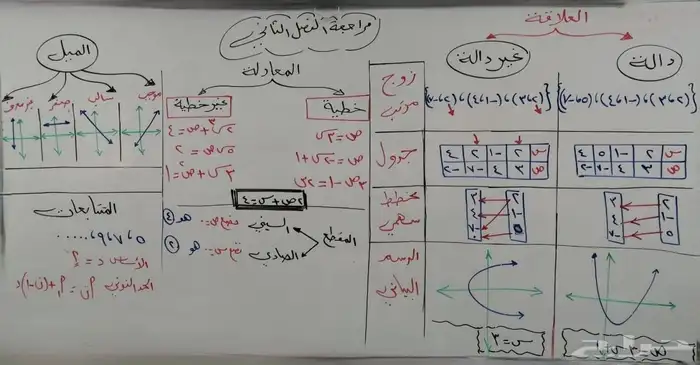 العلاقة
دالة
غير دالة
زوج مرتب
{(٣،٢)،(-١،٤)،(٥،-٧)}
{(٣،٢)،(-١،٤)،(٢،-٧)}
جدول
س ٢ -١ ٥ ٤
ص ٣ ٤ -٧ -٢
س ٢ -١ ٢ ٤
ص ٣ ٤ -٧ -٢
مخطط سهمي
٢
-١
٥
٣
٤
-٧
الرسم البياني
س = ٣
مراجعة الفصل الثاني
المعادلة
خطية
غير خطية
ص = ٣س
ص = -٢س + ١
٣ص - ١ = ٢س
٢س٣ + ص = ٤
س ص = ٢
٣س + ص٢ = ١
٢ص + س = ٤
المقطع
السيني
نضع ص.. هو ٤
الصادي
نضع س.. هو ٢
الميل
موجب
سالب
صفر
غير معرف
المتتابعات
٥، ٧، ٦، ٩، .....
الأساس د = ؟
الحد النوني أن = أ١ + (ن - ١) د